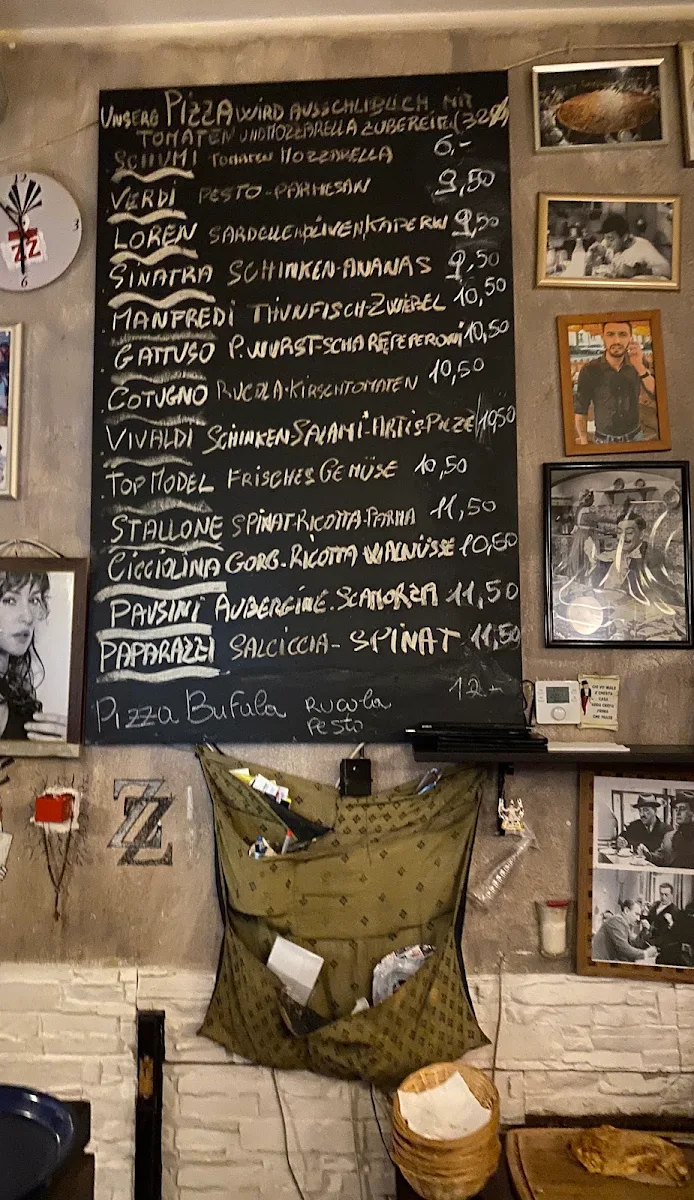 UNSERE PIZZA WIRD AUSSCHLIEßLICH MIT
TOMATEN UND MOZZARELLA ZUBEREITET (32
SCHUMI TOMATEN MOZZARELLA 6,-
VERDI PESTO-PARMESAN 9,50
LOREN SARDELLEN OLIVEN KAPERN 9,50
SINATRA SCHINKEN-ANANAS 9,50
MANFREDI THUNFISCH-ZWIEBEL 10,50
GATTUSO P.WURST-SCHARFE PEPERONI 10,50
COTUGNO RUCOLA-KIRSCHTOMATEN 10,50
VIVALDI SCHINKEN SALAMI-ARTIS-PILZE 10,50
TOP MODEL FRISCHES GEMÜSE 10,50
STALLONE SPINAT-RICOTTA-PARMA 11,50
CICCIOLINA GORG-RICOTTA WALNÜSSE 10,50
PAUSINI AUBERGINE-SCAMORZA 11,50
PAPARAZZI SALCICCIA-SPINAT 11,50
Pizza Bufala RUCOLA 12.-
PESTO
12
3
6
ZZ
ZZ